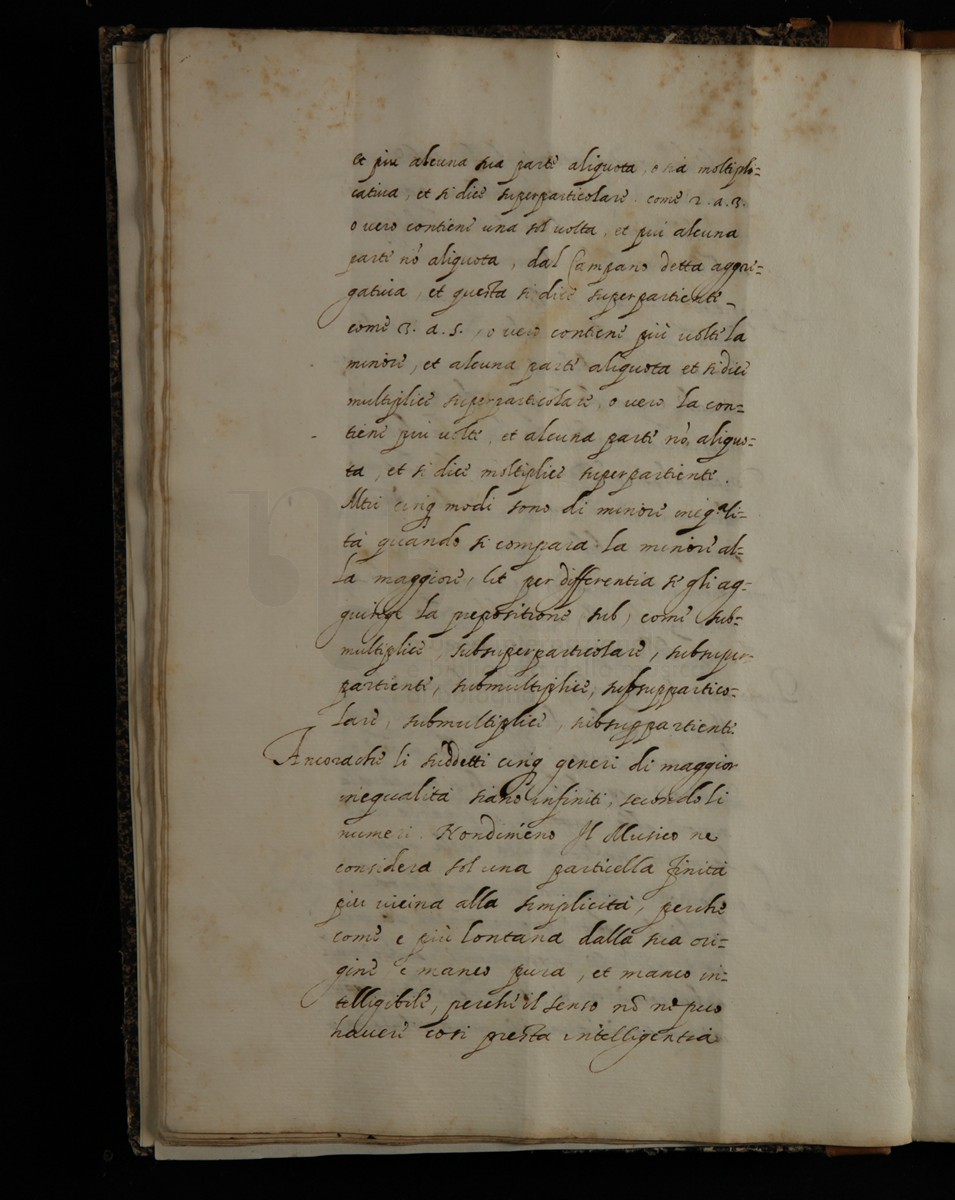 et piu alcuna sua parte aliquota, o sia moltipli=
catiua, et si dice superparticolare. come 2. a. 3.
o uero contiene una sol uolta, et piu alcuna
parte nõ aliquota, dal Campano detta aggre=
gatiua, et questa si dice superpartiente
come 3. a. 5., o uero contiene più uolte la
minore, et alcuna parte aliquota et si dice
multiplice superparticolare, o uero la con=
tiene piu uolte, et alcuna parte nõ aliquo=
ta, et si dice moltiplice superpartiente.
Altri cinq modi sono di minore ineq.ali=
tà quando si compara la minore al=
la maggiore, et per differentia se gli ag=
guinge la prepositione sub, come sub=
multiplice, subsuperparticolare, subsuper=
partiente, submultiplice, subsupparticо=
lare, submultiplice, subsuppartiente.
Ancorache li suddetti cinq generi di maggior
inequalità siano infiniti, secondo li
numeri. Nondimeno Il Musico ne
considera sol una particella finita
piu uicina alla simplicità, perche
come e più lontana dalla sua ori=
gine è manco pura, et manco in=
telligibile, perche il senso nõ ne puo
hauere cosi presta intelligentia